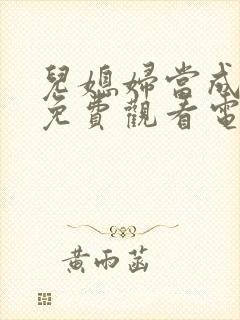 兒媳婦當成
免費觀看電
黃雨菡